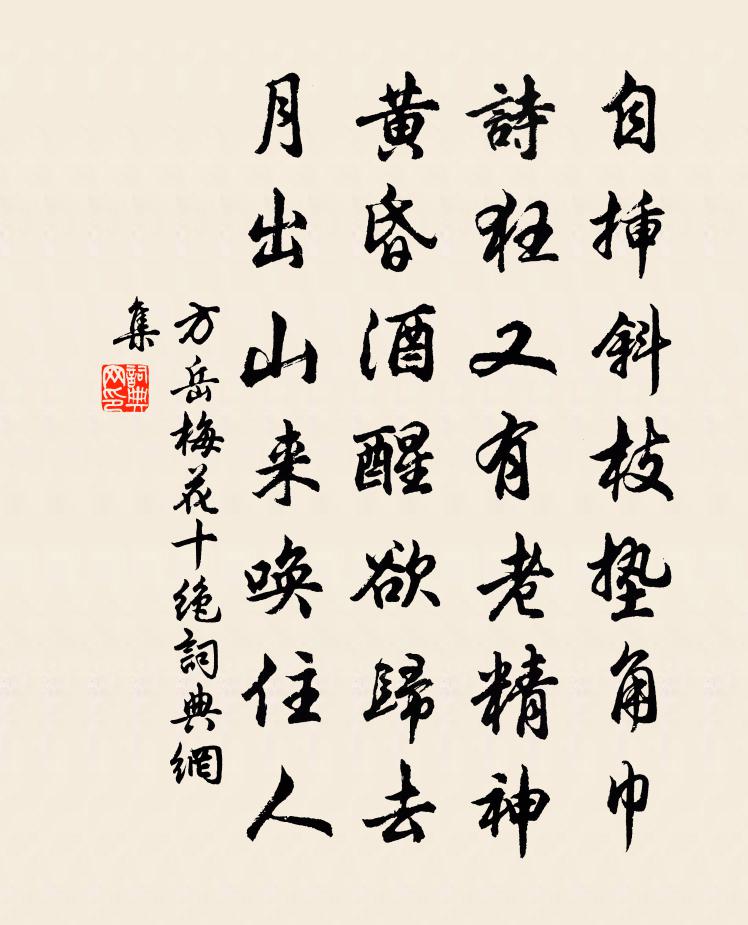 自插斜枝墊角巾
詩狂又有老精神
黃昏酒醒欲歸去
月出山来喚住人
方岳梅花十绝詞典網
集
詞典
网印